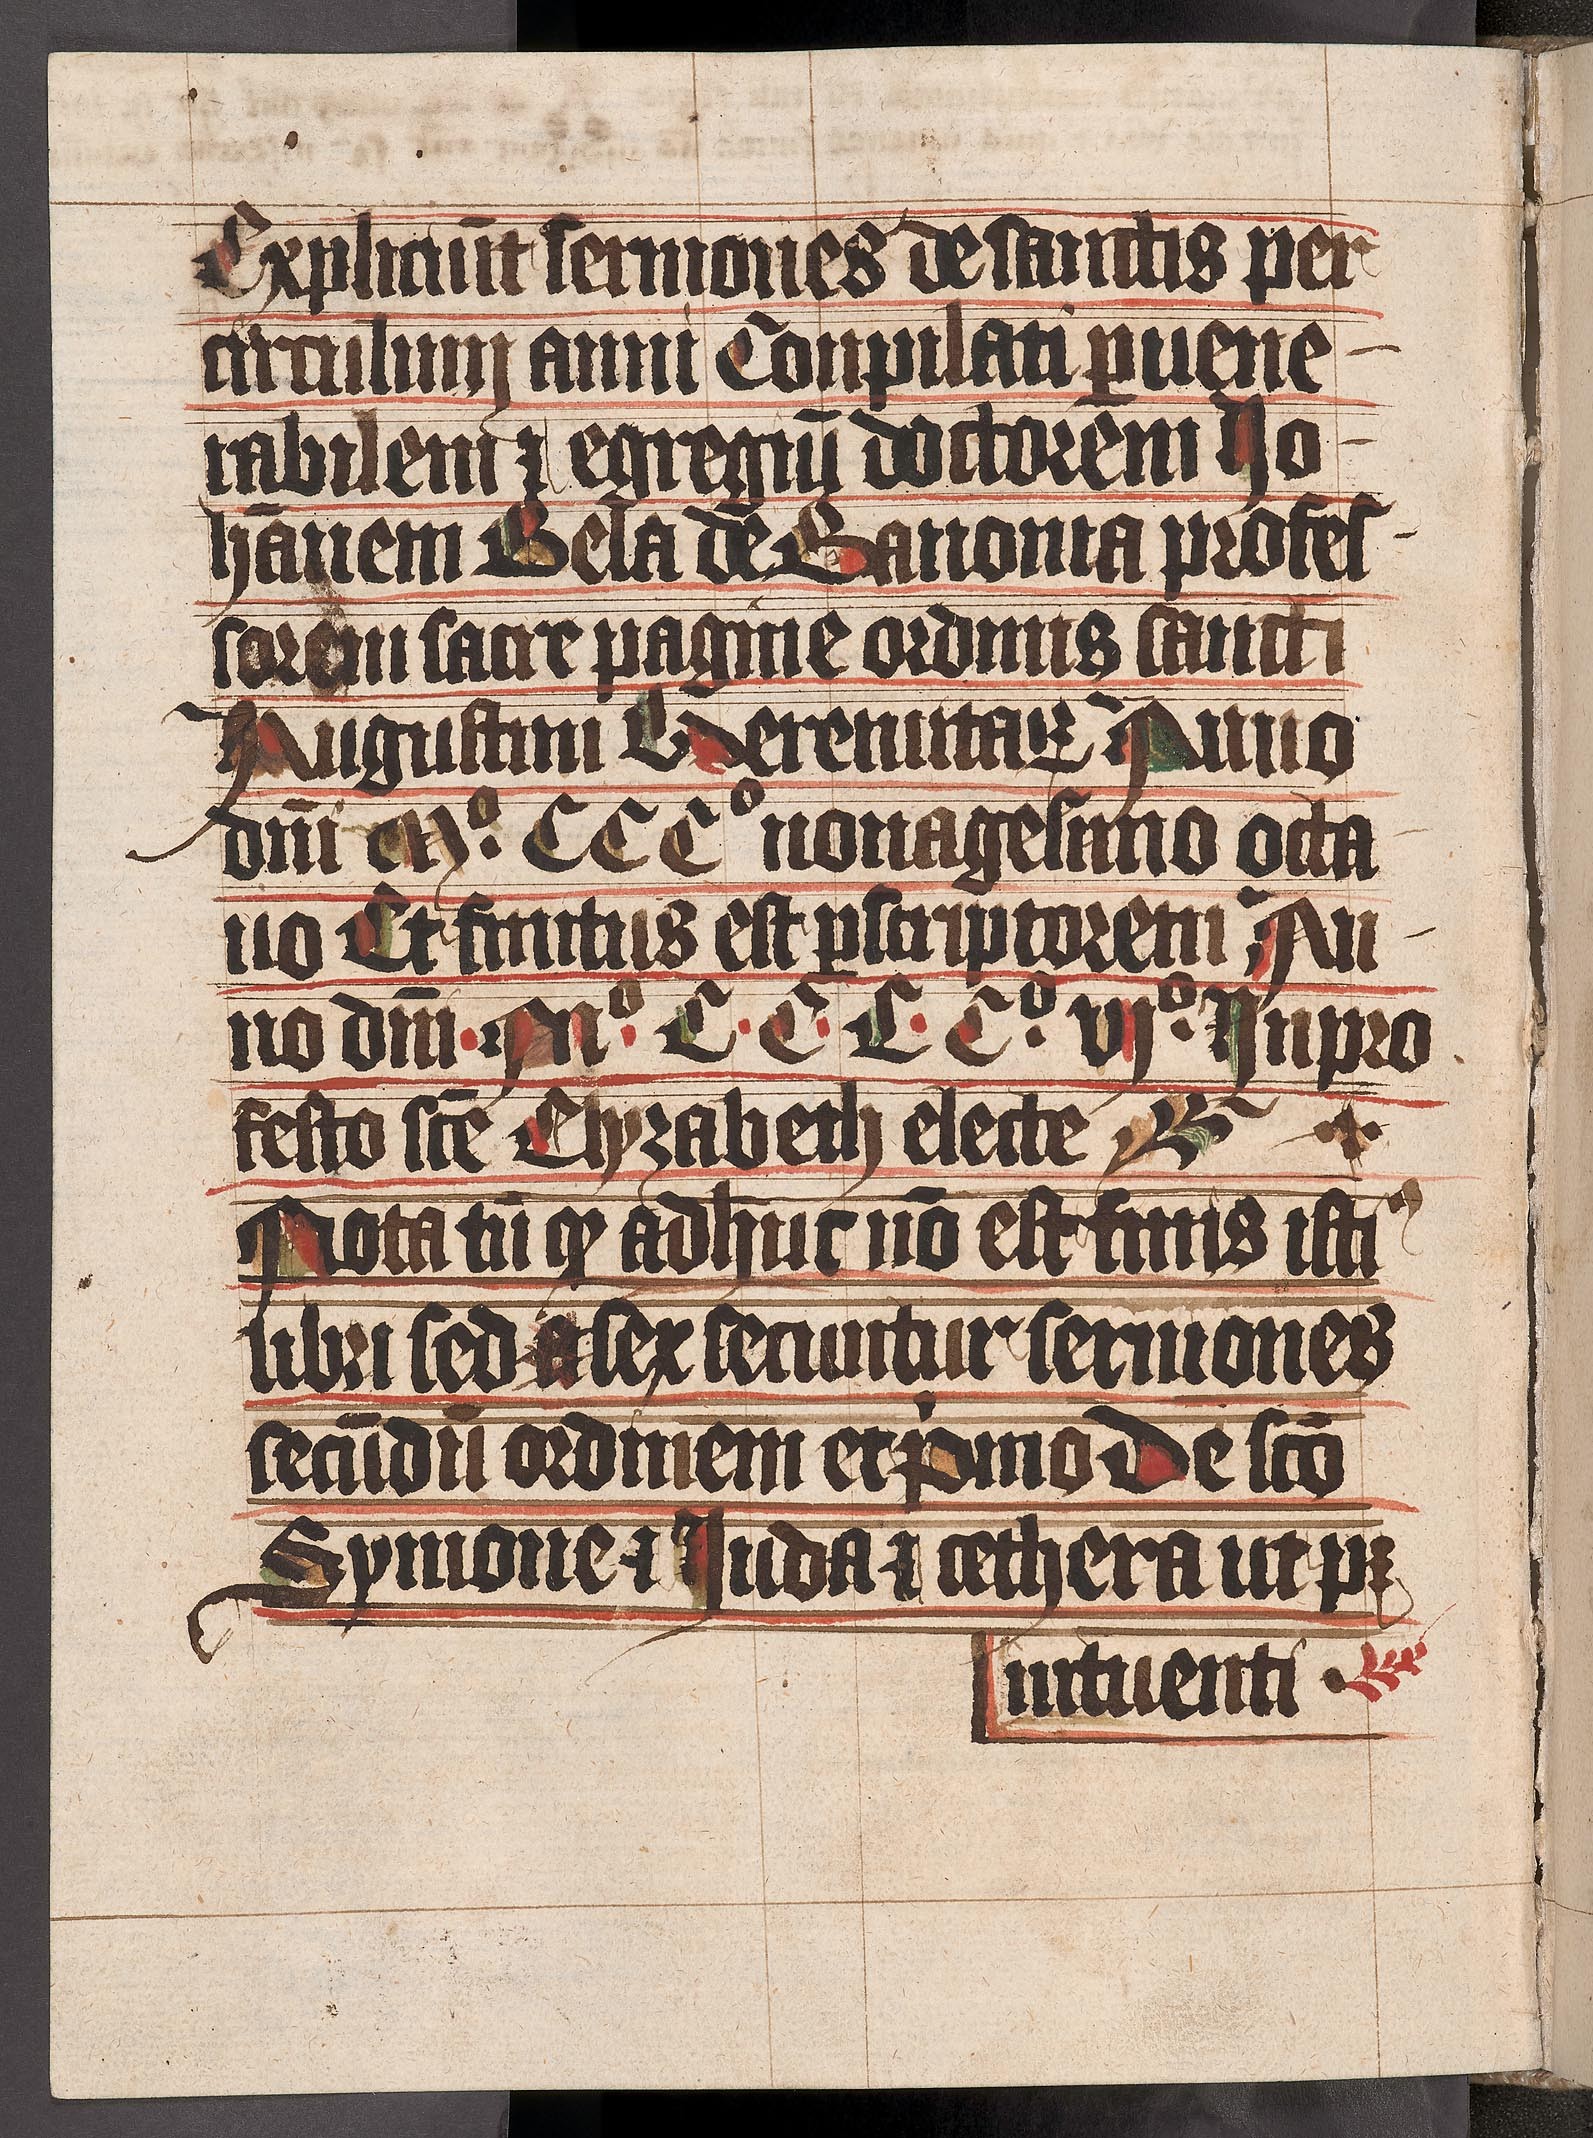 Expliciūt sermones de sanctis per
circulum anni Conpilati ꝑ uene-
rabilem ⁊ egregiū doctorem Jo-
hānem Bela de Banonia profes-
sorem sacre pagine ordinis sancti
Augustini Heremitaꝝ Anno
dn̄i Mº. CCCº nonagesimo octa-
uo Et finitus est ꝑ scriptorem An-
no dn̄i · Mº. C · C · C · Cº. vjº. In pro
festo scē Elyzabeth electe
Nota tn̄ ꝙ adhuc nō est finis isti⁹
libri sed sex secuntur sermones
secūdū ordinem et pͥmo De scō
Symone ⁊ Juda ⁊ cethera ut pꝫ
intuenti